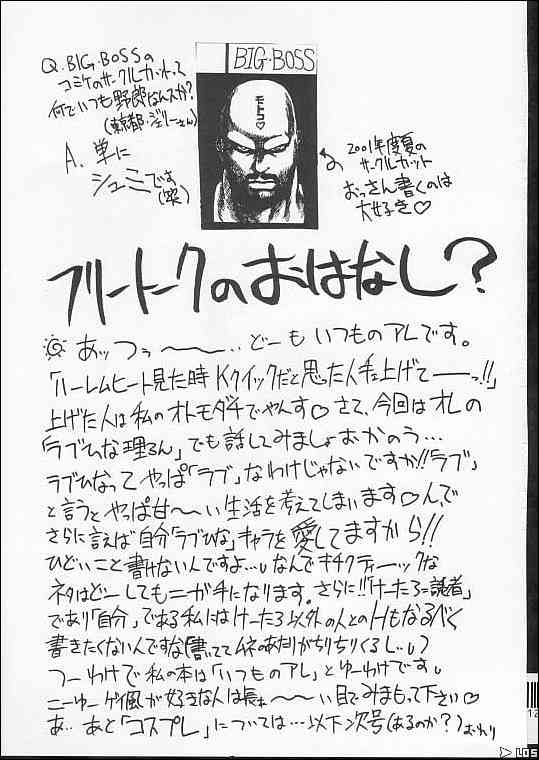 Q.BIG・BOSSの
コミケのサークルカットって
何でいつも野郎なんスか?
(東京都・ジェリーさん)
A. 単に
シュミです
(笑)
BIG・BOSS
2001年度夏の
サークルカット
おっさん書くのは
大好き♡
フリートークのおはなし?
あッつぅ〜〜‥どーも いつものアレです。
「ハーレムヒート見た時 Kクイックだと思った人手上げてーーっ!!」
上げた人は私のオトモダチでやんす♡ さて、今回はオレの
「ラブひな理ろん」でも話してみましょおかのう…
ラブひなって やっぱ「ラブ」なわけじゃないですか!!「ラブ」
と言うと やっぱ甘〜〜い生活を考えてしまいます♡んで
さらに言えば自分「ラブひな」キャラを愛してますから!!
ひどいこと書けないんですよ…なんでキチクティーックな
ネタはどーしてもニガ手になります。さらに!!「けーたろ=読者」
であり「自分」である私にはけーたろ以外の人とのHもなるべく
書きたくないんですな(書いててムネのあたりがちりちりくるし…)
つーわけで私の本は「いつものアレ」とゆーわけです。
こーゆーゲイ風が好きな人は長ぁ〜〜い目でみまもって下さい♡
あ‥あと「コスプレ」については…以下次号(あるのか?)おわり
LOS